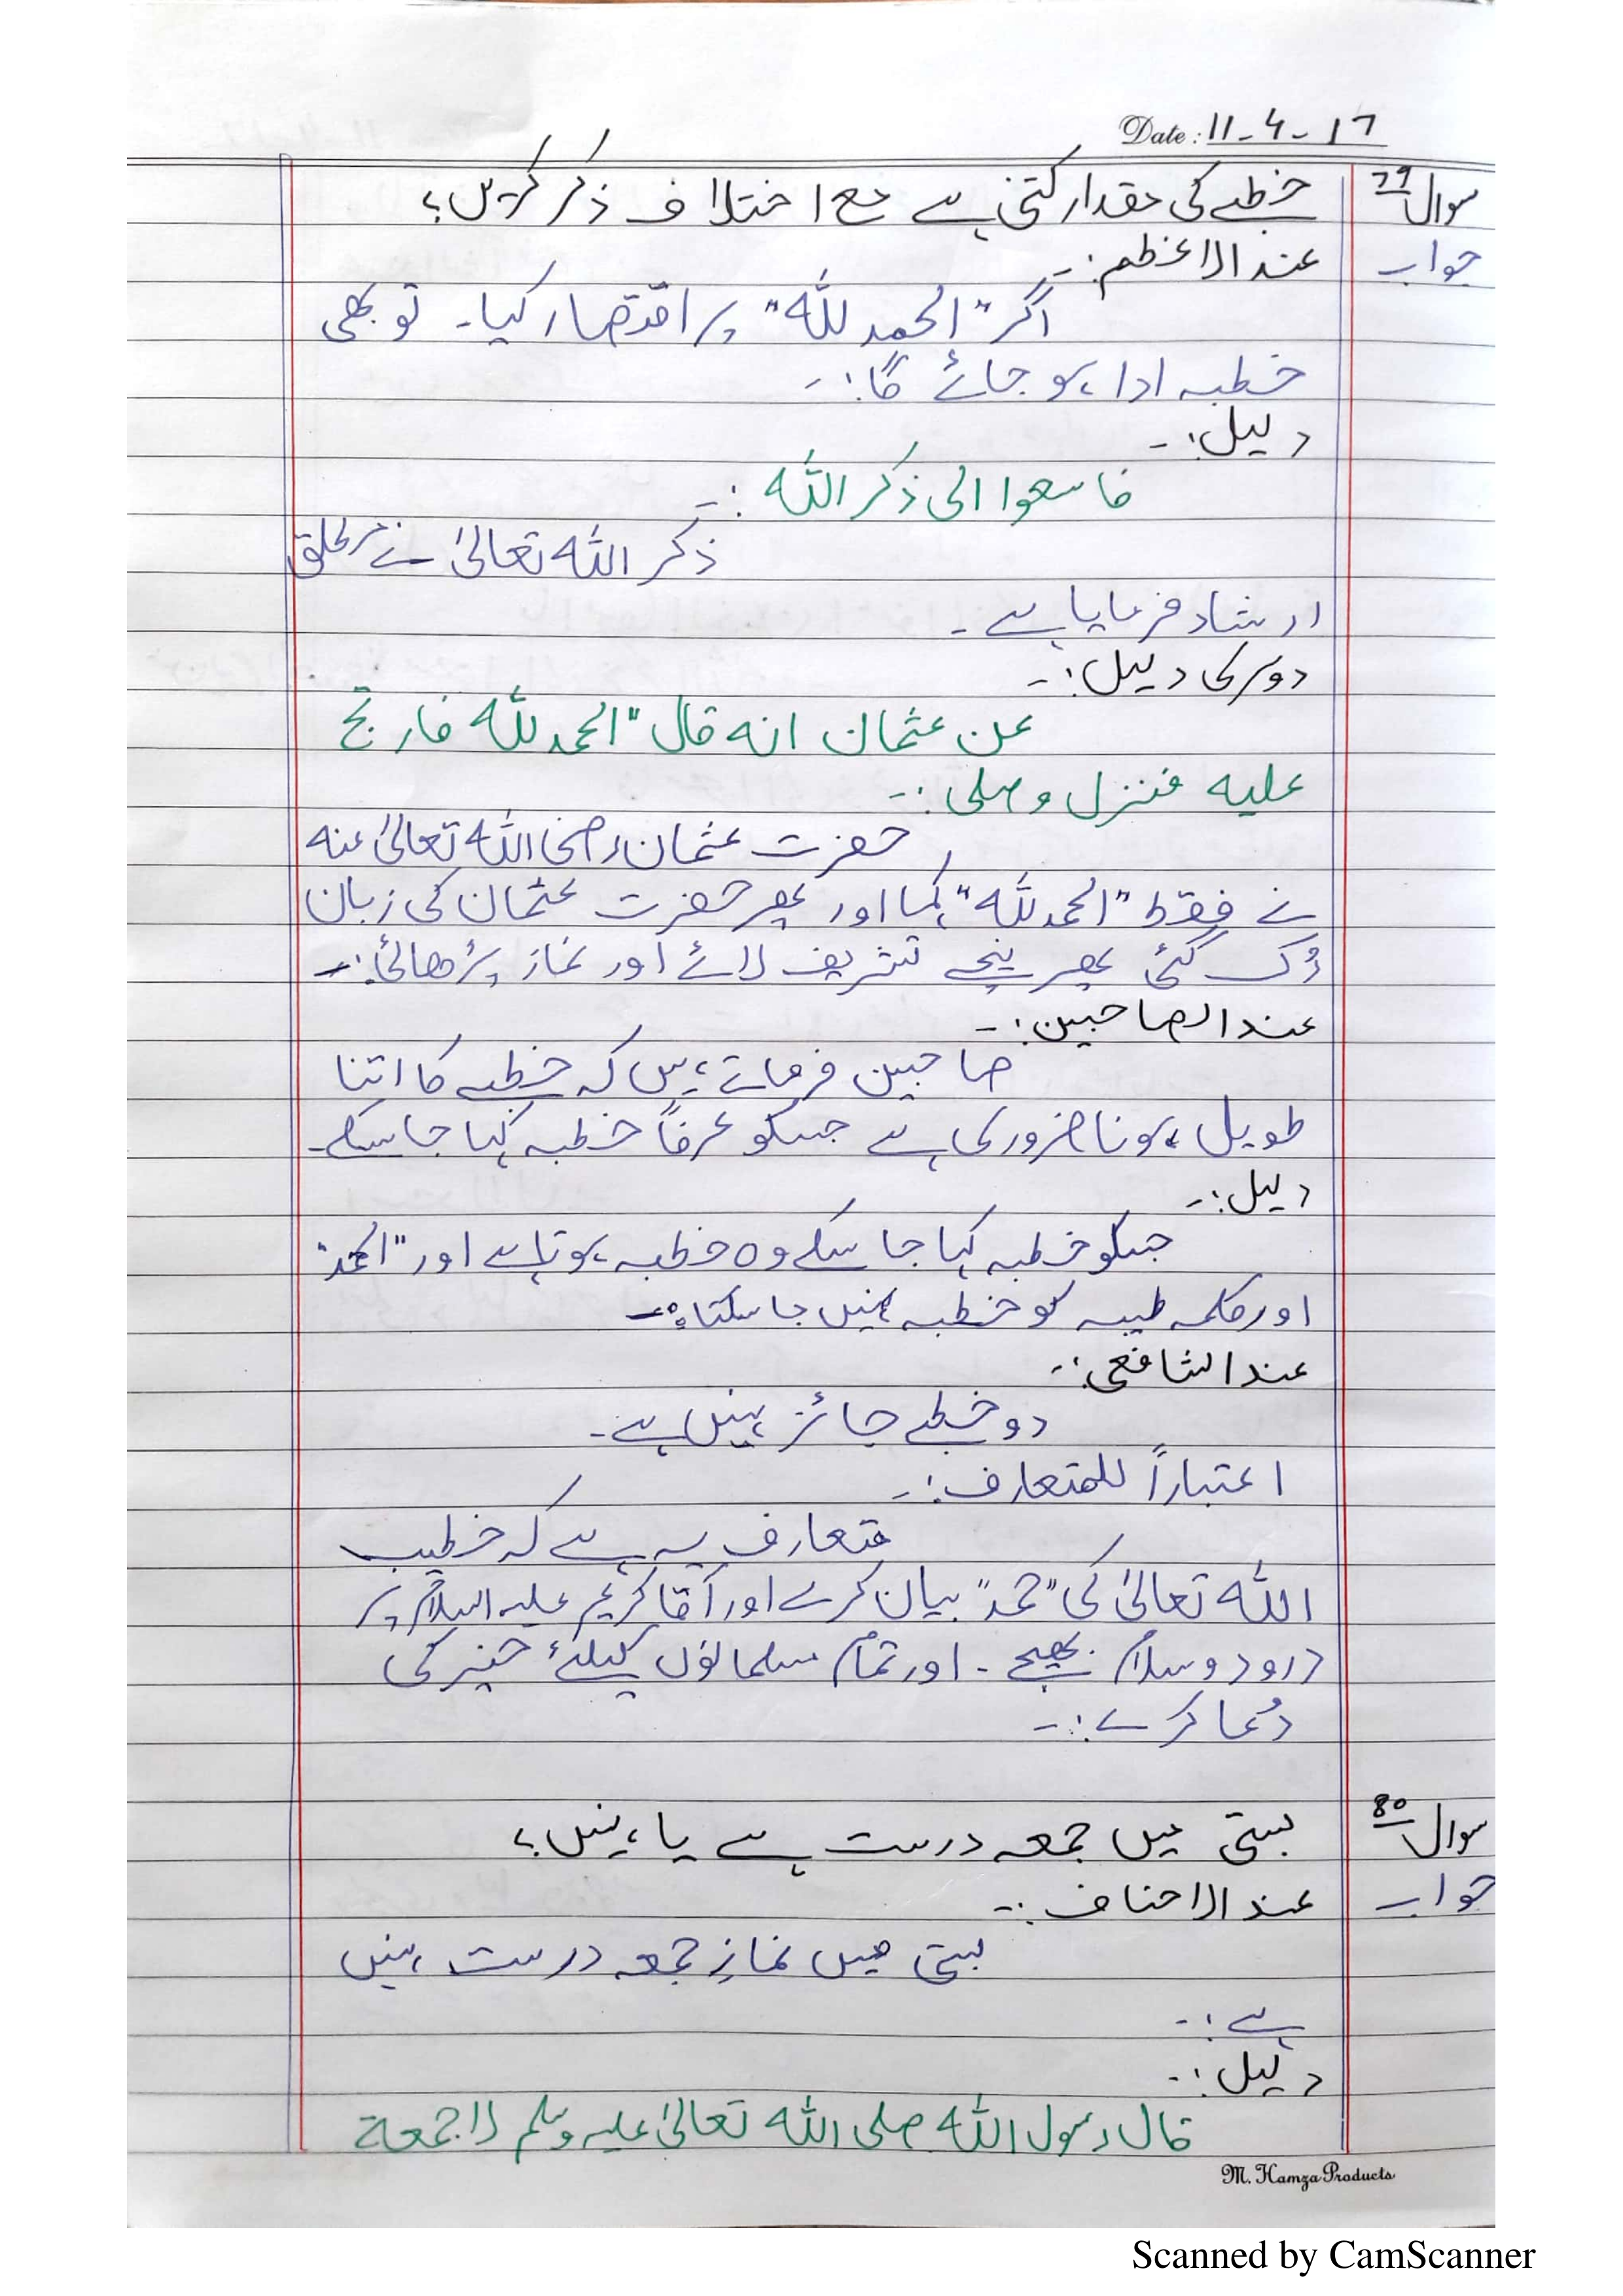 Date: 11-4-17
سوال 79 خطبے کی مقدار کتنی ہے مع اختلاف ذکر کریں؟
جواب عند الاعظم:-
اگر "الحمد للہ" پر اقتصار کیا۔ تو بھی
خطبہ ادا ہو جائے گا:-
دلیل:-
فاسعوا الی ذکر اللہ :-
ذکر اللہ تعالیٰ نے مطلق
ارشاد فرمایا ہے۔
دوسری دلیل:-
عن عثمان انہ قال "الحمد للہ فارتج
علیہ فنزل وصلی:-
حضرت عثمان رضی اللہ تعالیٰ عنہ
نے فقط "الحمد للہ" کہا اور پھر حضرت عثمان کی زبان
رُک گئی پھر نیچے تشریف لائے اور نماز پڑھائی:-
عند الصاحبین:-
صاحبین فرماتے ہیں کہ خطبے کا اتنا
طویل ہونا ضروری ہے جسکو عرفاً خطبہ کہا جا سکے۔
دلیل:-
جسکو خطبہ کہا جا سکے وہ خطبہ ہوتا ہے اور "الحمد"
اور کلمہ طیبہ کو خطبہ نہیں جا سکتا:-
عند الشافعی:-
دو خطبے جائز نہیں ہے۔
اعتباراً للمتعارف:-
متعارف یہ ہے کہ خطیب
اللہ تعالیٰ کی "حمد" بیان کرے اور آقا کریم علیہ السلام پر
درود و سلام بھیجے۔ اور تمام مسلمانوں کیلئے خیر کی
دُعا کرے:-
سوال 80 بستی میں جمعہ درست ہے یا نہیں؟
جواب عند الاحناف:-
بستی میں نمازِ جمعہ درست نہیں
ہے:-
دلیل:-
قال رسول اللہ صلی اللہ تعالیٰ علیہ وسلم لا جمعة
M. Hamza Products
Scanned by CamScanner